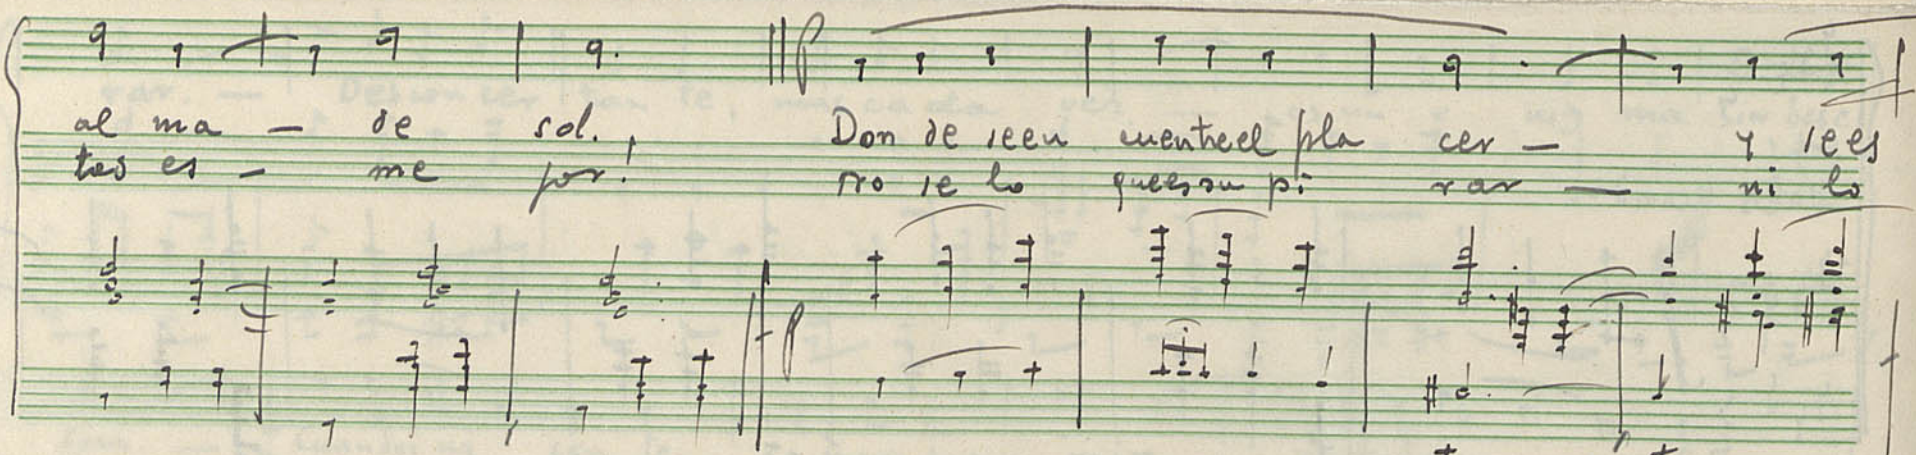 al ma — de sol. Don de seen cuentreel pla cer — y sees
tas es — me jor! no se lo quees su pi rar — ni lo